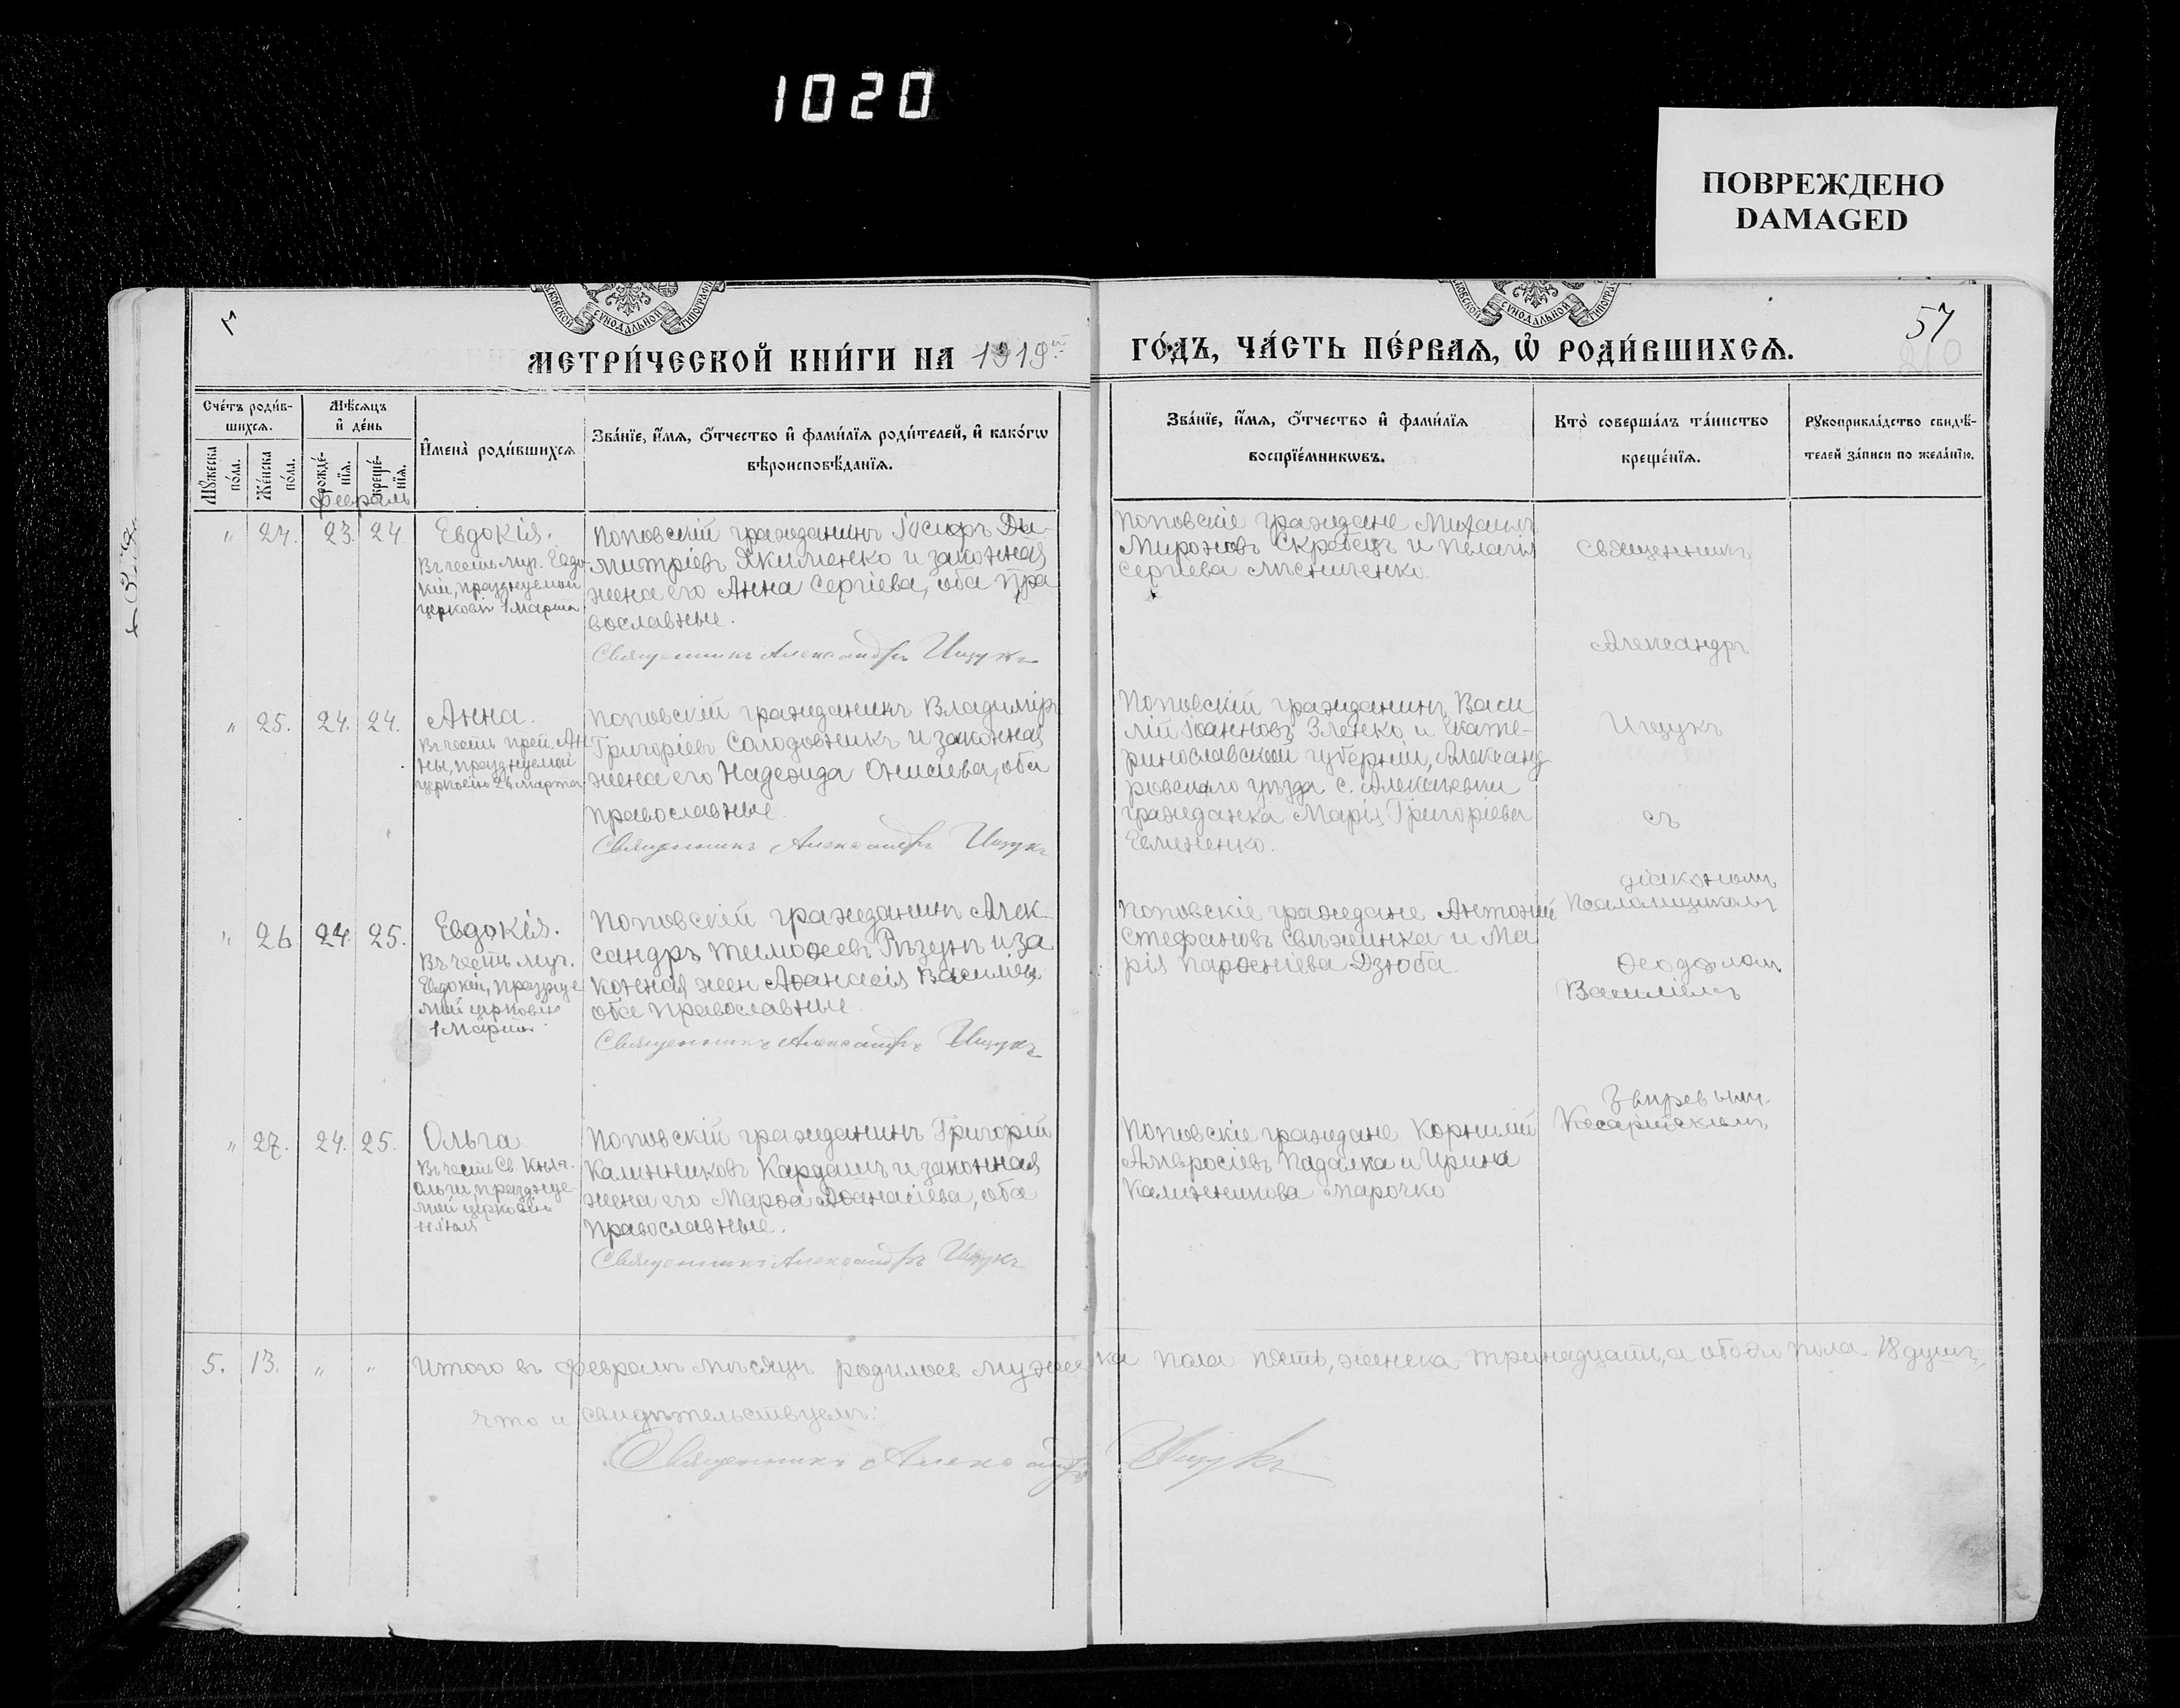 1020
ПОВРЕЖДЕНО
DAMAGED
МОСКОВСКОЙ СѴНОДАЛЬНОЙ ТИПОГРАФ
МОСКОВСКОЙ СѴНОДАЛЬНОЙ ТИПОГРАФ
57
МЕТРИ́ЧЕСКОЙ КНИ́ГИ НА 1919й
ГО́ДЪ, ЧА́СТЬ ПЕ́РВАЯ, Ѡ҆ РОДИ́ВШИХСЯ.
Сче́тъ роди́в-
шихся.
Мѣ́сяцъ
и҆ де́нь
Мꙋ́жеска
по́ла.
Же́нска
по́ла.
рожде́-
нїя.
креще́-
нїя.
Февраль
И҆мена̀ роди́вшихся
Зва́нїе, и҆́мя, ѻ҆́тчество и҆ фами́лїя роди́телей, и҆ како́гѡ
вѣроисповѣ́данїя.
Зва́нїе, и҆́мя, ѻ҆́тчество и҆ фами́лїя
воспрїе́мникѡвъ.
Кто̀ соверша́лъ та́инство
креще́нїя.
Рꙋкоприкла́дство свидѣ́-
телей за́писи по жела́нїю.
" 24. 23. 24.
Евдокія.
Въ честь муч. Евдо-
кіи, празднуемой
церковію 1 Марта
Поповскій гражданинъ Іосифъ Ди-
митріевъ Якименко и законная
жена его Анна Сергіева, оба пра
вославные.
Священникъ Александръ Ищукъ
Поповскіе граждане Михаилъ
Мироновъ Скребецъ и Пелагія
Сергіева Лѣсниченко.
Священникъ
Александръ
Ищукъ
съ
діакономъ
Псаломщикомъ
Ѳеодоромъ
Василіемъ
Кесарійскимъ
" 25. 24. 24.
Анна.
Въ честь преп. Ан
ны, празднуемой
церковію 26 Марта
Поповскій гражданинъ Владиміръ
Григоріевъ Солодовникъ и законная
жена его Надежда Онисіева, оба
православные.
Священникъ Александръ Ищукъ
Поповскій гражданинъ Васи
лій Іоанновъ Зленко и Екате-
ринославской губерніи, Александ
ровскаго уѣзда с. Алексѣевки
гражданка Марія Григоріева
" 26 24. 25.
Евдокія.
Въ честь муч.
Евдокіи, праздуе
мой церковію
1 Марта.
Поповскій гражданинъ Алек-
сандръ Тимоѳеевъ Рѣзунъ и за
конная жен Аѳанасія Василіева
оба православные
Священникъ Александръ Ищукъ
Поповскіе граждане Антоній
Стефановъ Свѣжинка и Ма
рія Парѳеніева Дзюба.
" 27. 24. 25.
Ольга
Въ честь Св. Княг.
Ольги, праздуе-
мой церковію
11 Іюля
Поповскій гражданинъ Григорій
Калинниковъ Кардашъ и законная
жена его Марѳа Аѳанасіева, оба
православные.
Священникъ Александръ Ищукъ
Поповскіе граждане Корнилій
Амвросіевъ Падалка и Ирина
Калинникова Марочко
5. 13. " " Итого въ Февралѣ мѣсяцѣ родилось мужеска пола пять, женска тринадцать, а обоего пола 18 душъ,
что и свидѣтельствуемъ:
Священникъ Александръ Ищукъ